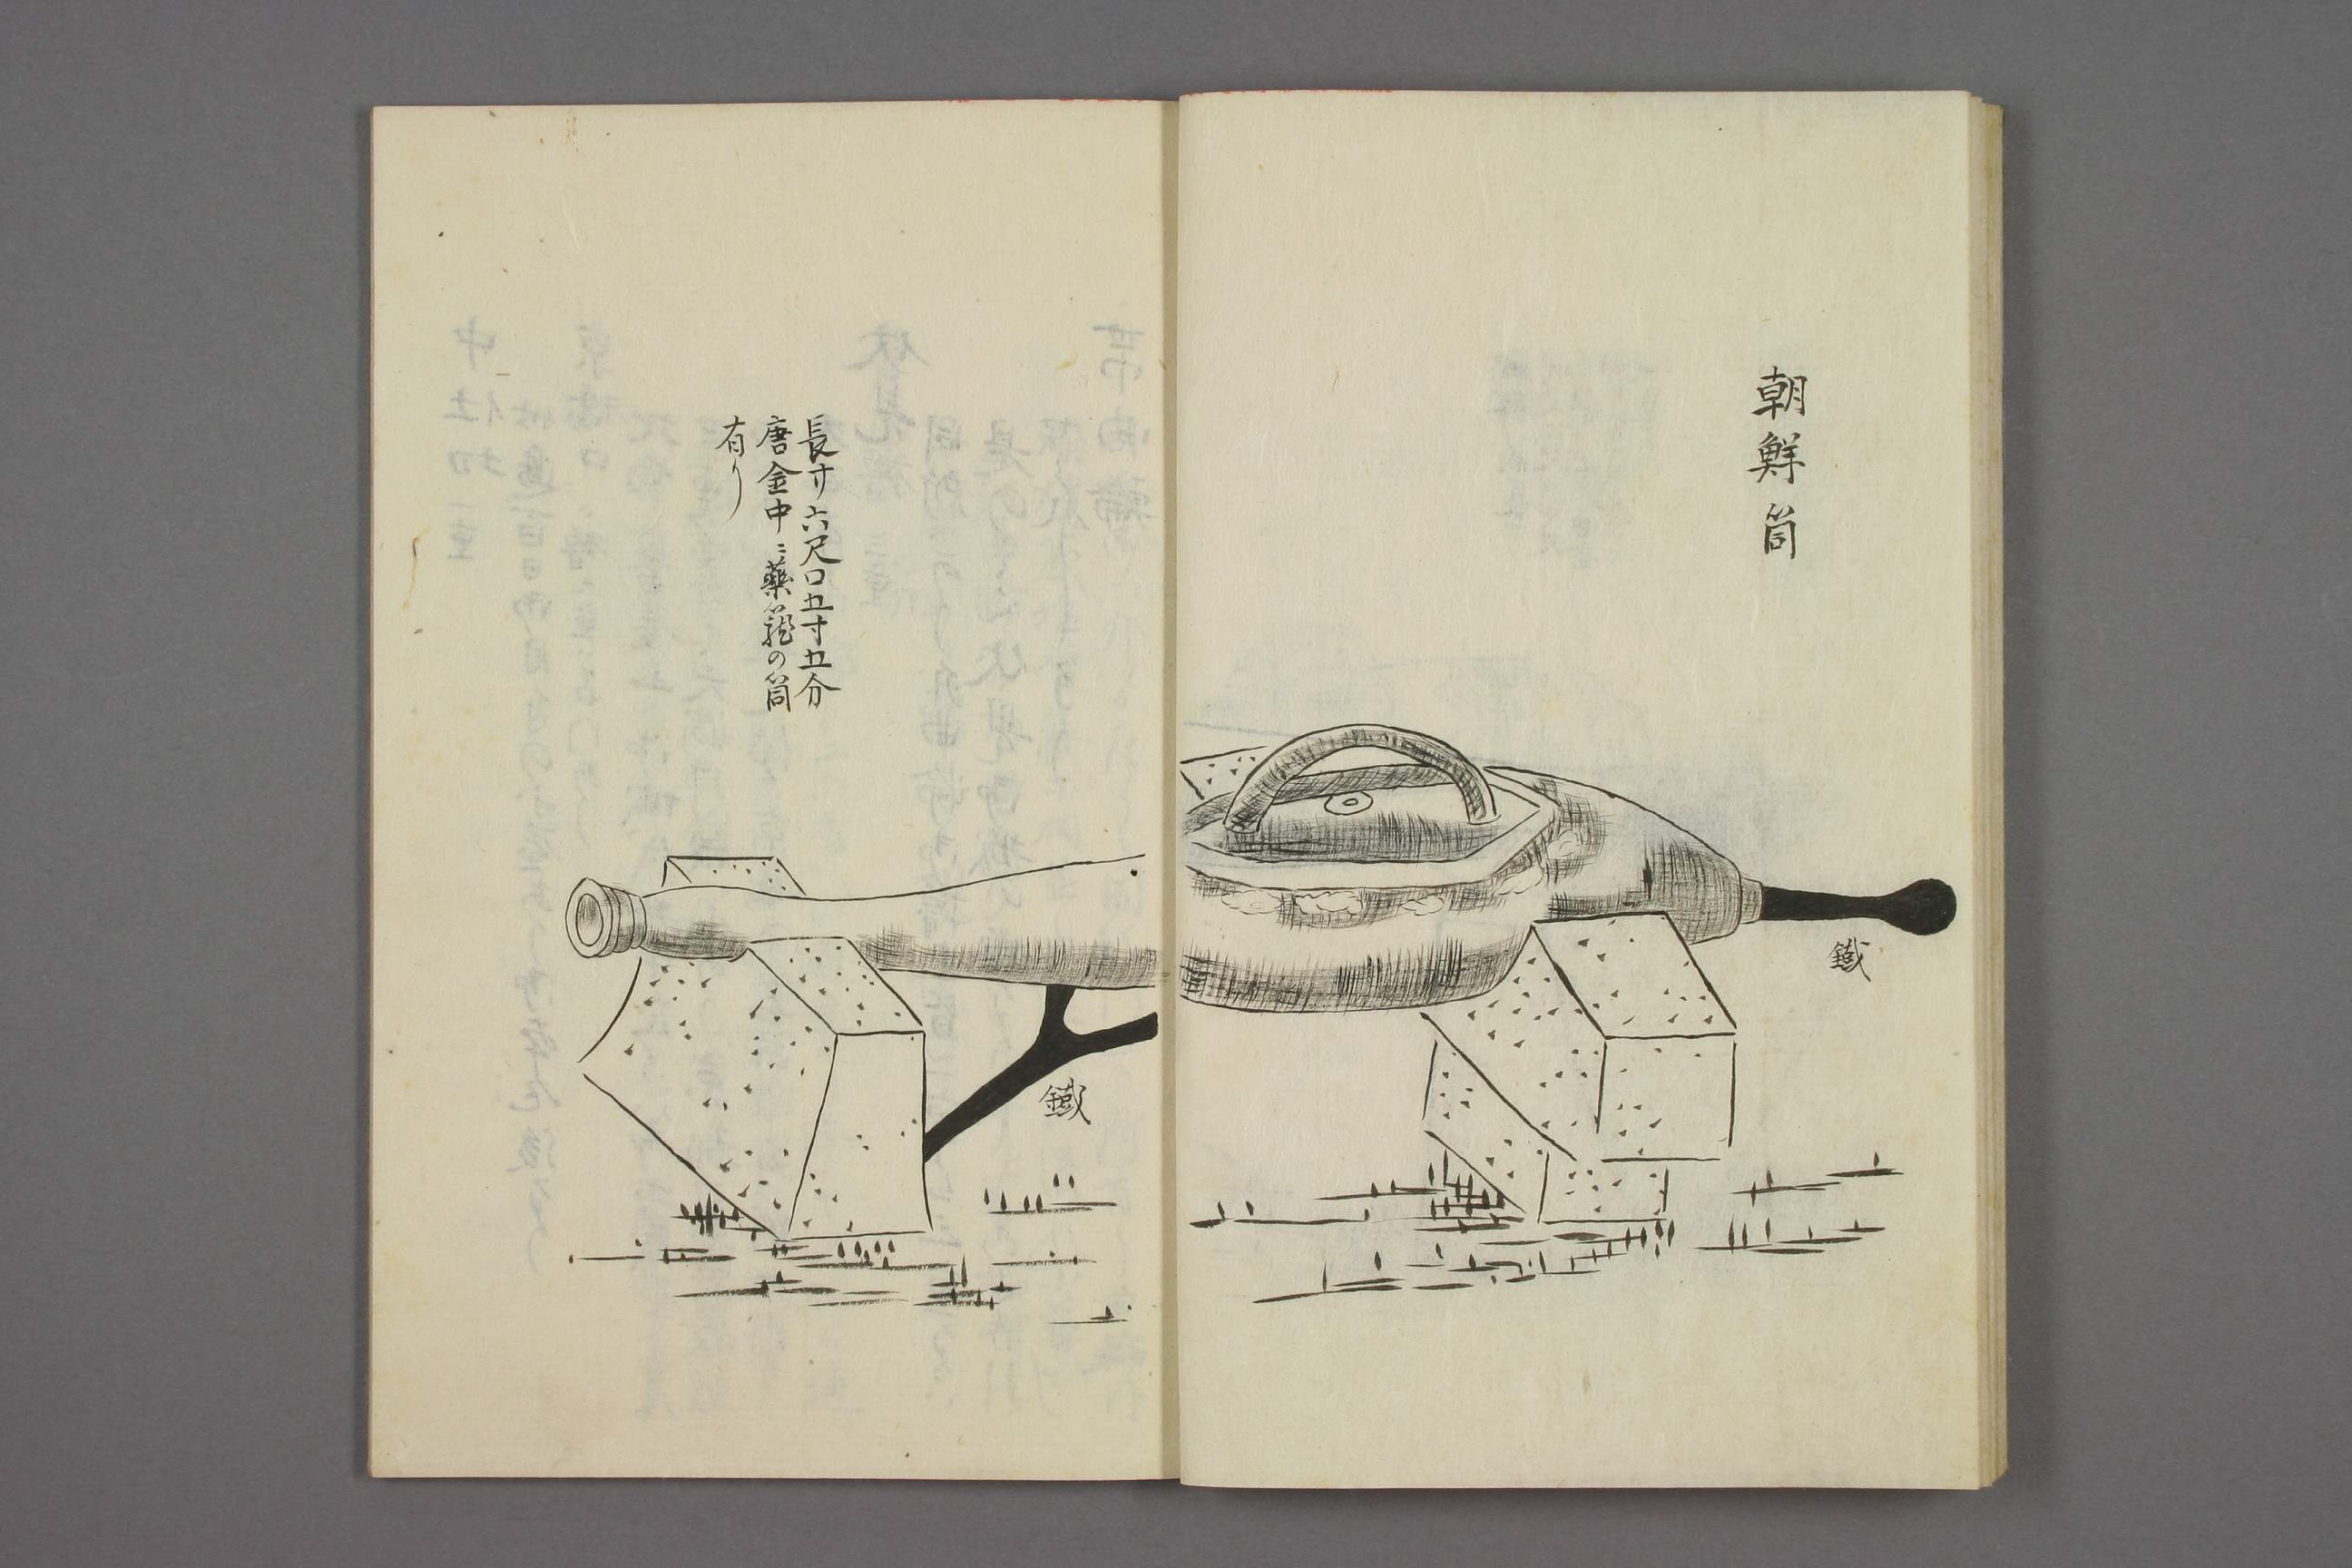 朝鮮筒
鐵
長サ六尺口五寸五分
唐金中ニ藥籠の筒
有り
鐵